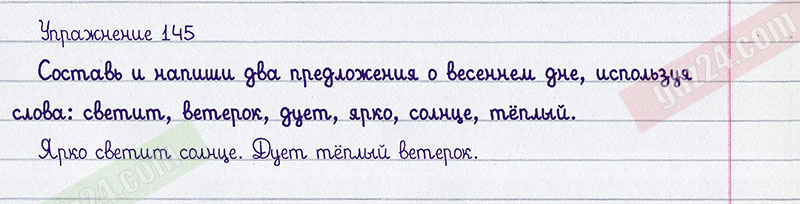 Упражнение 145
Составь и напиши два предложения о весеннем дне, используя
слова: светит, ветерок, дует, ярко, солнце, тёплый.
Ярко светит солнце. Дует тёплый ветерок.
gdz24.com
gdz24.com